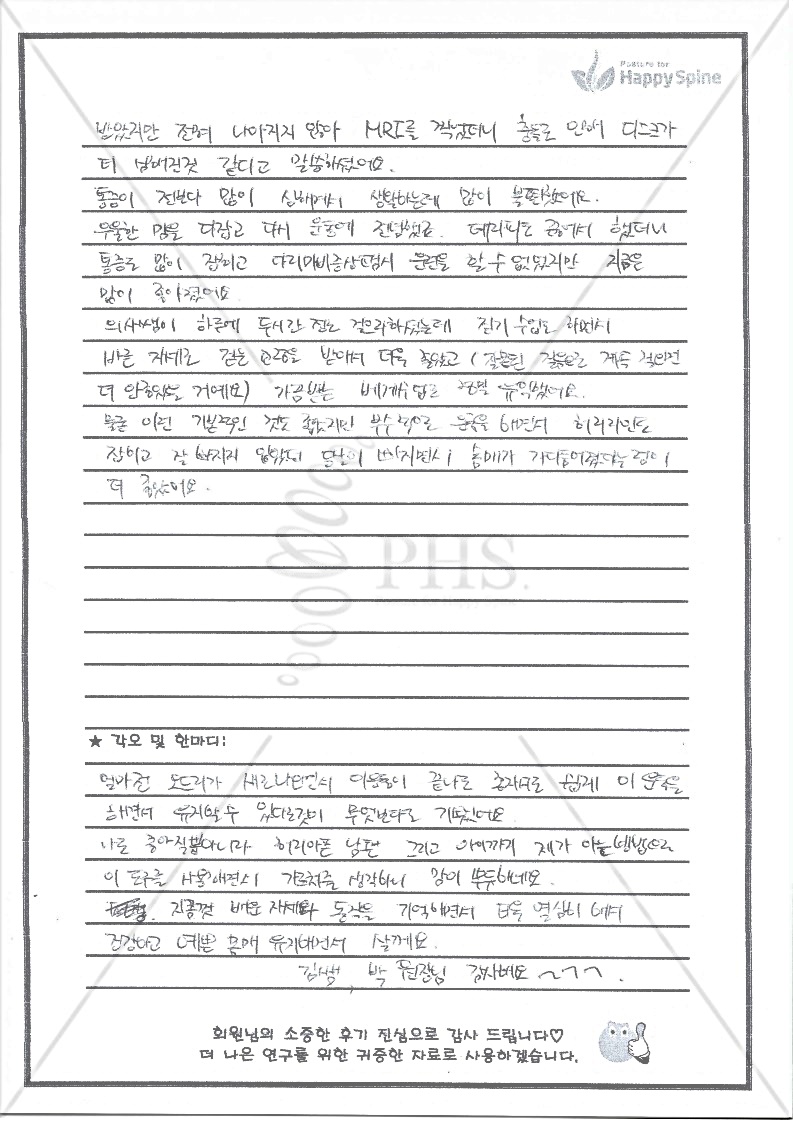 Posture for
Happy Spine
받았지만 전혀 나아지지 않아 MRI를 찍었더니 충돌로 인해 디스크가
더 넘어진것 같다고 말씀하셨어요.
통증이 전보다 많이 심해져서 생활하는데 많이 불편했어요.
우울한 맘을 다잡고 다시 운동에 전념했고 테라피도 곁에서 했더니
통증도 많이 잡히고 다리마비증상 운전을 할 수 없었지만 지금은
많이 좋아졌어요
의사쌤이 하루에 두시간 정도 걸으라하셨는데 걷기 수업도 하면서
바른 자세로 걷는 교정을 받아서 더욱 좋았고 (잘못된 걸음으로 계속 걸었면
더 안좋았을 거예요) 가끔받는 베개수업도 정말 유익했어요.
물론 이런 기본적인 것도 좋았지만 부수적으로 운동을 하면서 허리라인도
잡히고 잘 빠지지 않았던 군살이 빠지면서 몸매가 가다듬어졌다는 점이
더 좋았어요.
PHS.
★ 각오 및 한마디:
얼마전 오드리가 새로나왔면서 이용들이 끝나도 혼자서도 쉽게 이 운동을
하면서 유지할 수 있다는것이 무엇보다도 기뻤어요
나도 좋아질뿐아니라 허리아픈 남편 그리고 아이까지 제가 아는방법으로
이 도구를 사용하면서 가르쳐줄 생각하니 맘이 뿌듯하네요.
지금껏 배운 자세와 동작을 기억하면서 더욱 열심히 해서
건강하고 예쁜 몸매 유지하면서 살게요.
김쌤, 박 원장님 감사해요~ㄱㄱ.
회원님의 소중한 후기 진심으로 감사 드립니다♡
더 나은 연구를 위한 귀중한 자료로 사용하겠습니다.